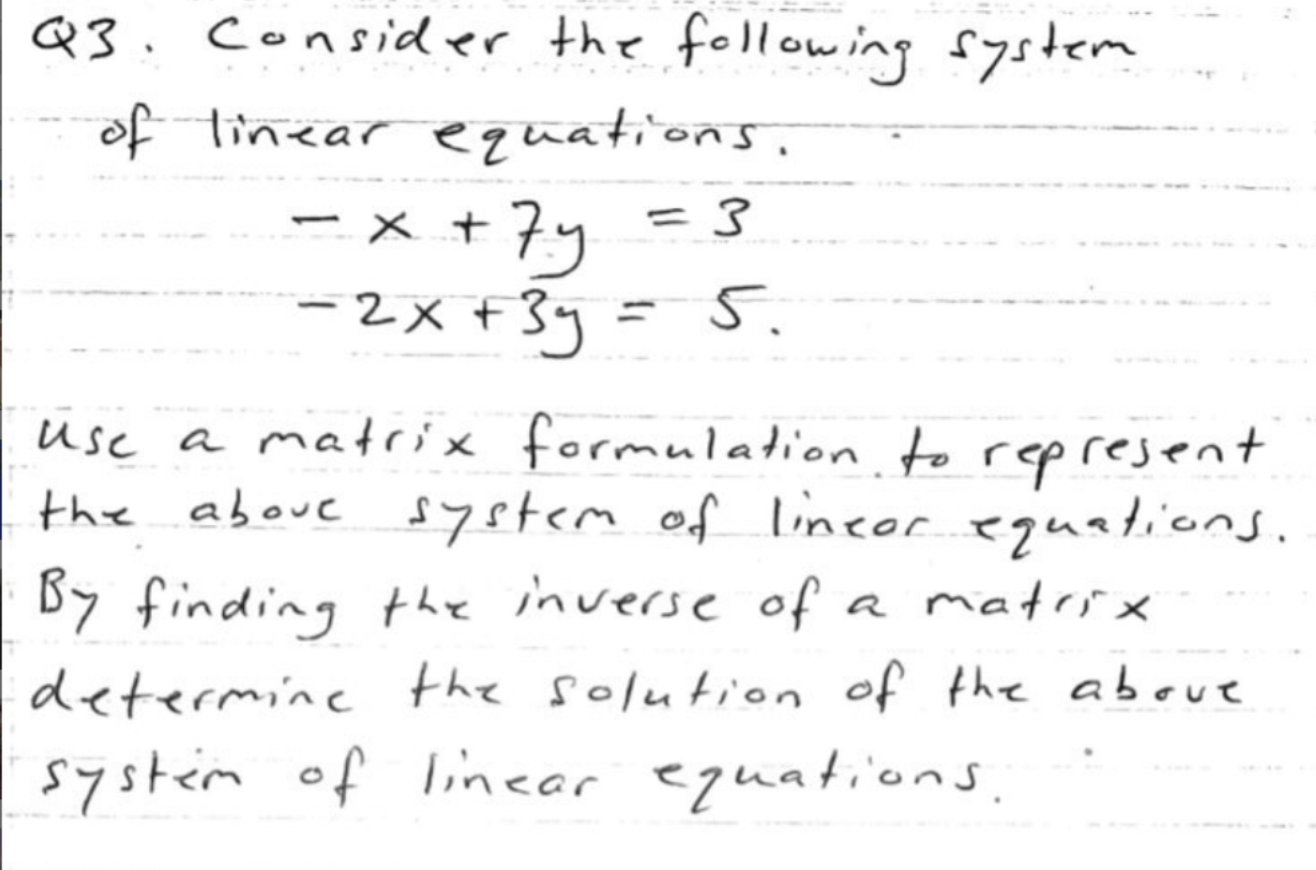 Q3. Consider the following system
of linear equations.
- x + 7y = 3
- 2x + 3y = 5.
Use a matrix formulation to represent
the above system of linear equations.
By finding the inverse of a matrix
determine the solution of the above
system of linear equations.